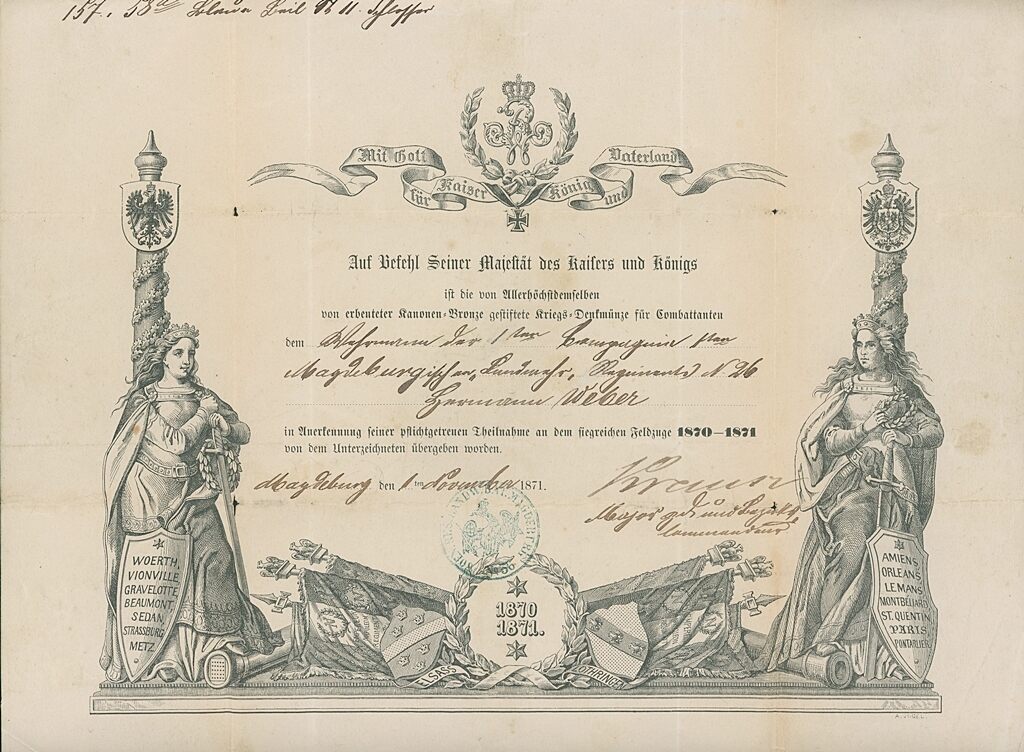 157. 58
Mit Gott für Kaiser König und Vaterland
Auf Befehl Seiner Majestät des Kaisers und Königs
ist die von Allerhöchstdemselben
von erbeuteter Kanonen-Bronze gestiftete Kriegs-Denkmünze für Combattanten
dem Wehrmann der 1ten Compagnie 1ten
Magdeburgischen Landwehr Regiments N 26
Hermann Weber
in Anerkennung seiner pflichtgetreuen Theilnahme an dem siegreichen Feldzuge 1870–1871
von dem Unterzeichneten übergeben worden.
Magdeburg den 1ten November 1871.
Major und Bezirks
Commandeur
WOERTH,
VIONVILLE
GRAVELOTTE
BEAUMONT
SEDAN
STRASSBURG
METZ
1870
1871.
ELSASS
LOTHRINGEN
AMIENS
ORLEANS
LE MANS
MONTBELIARD
ST. QUENTIN
PARIS
PONTARLIER